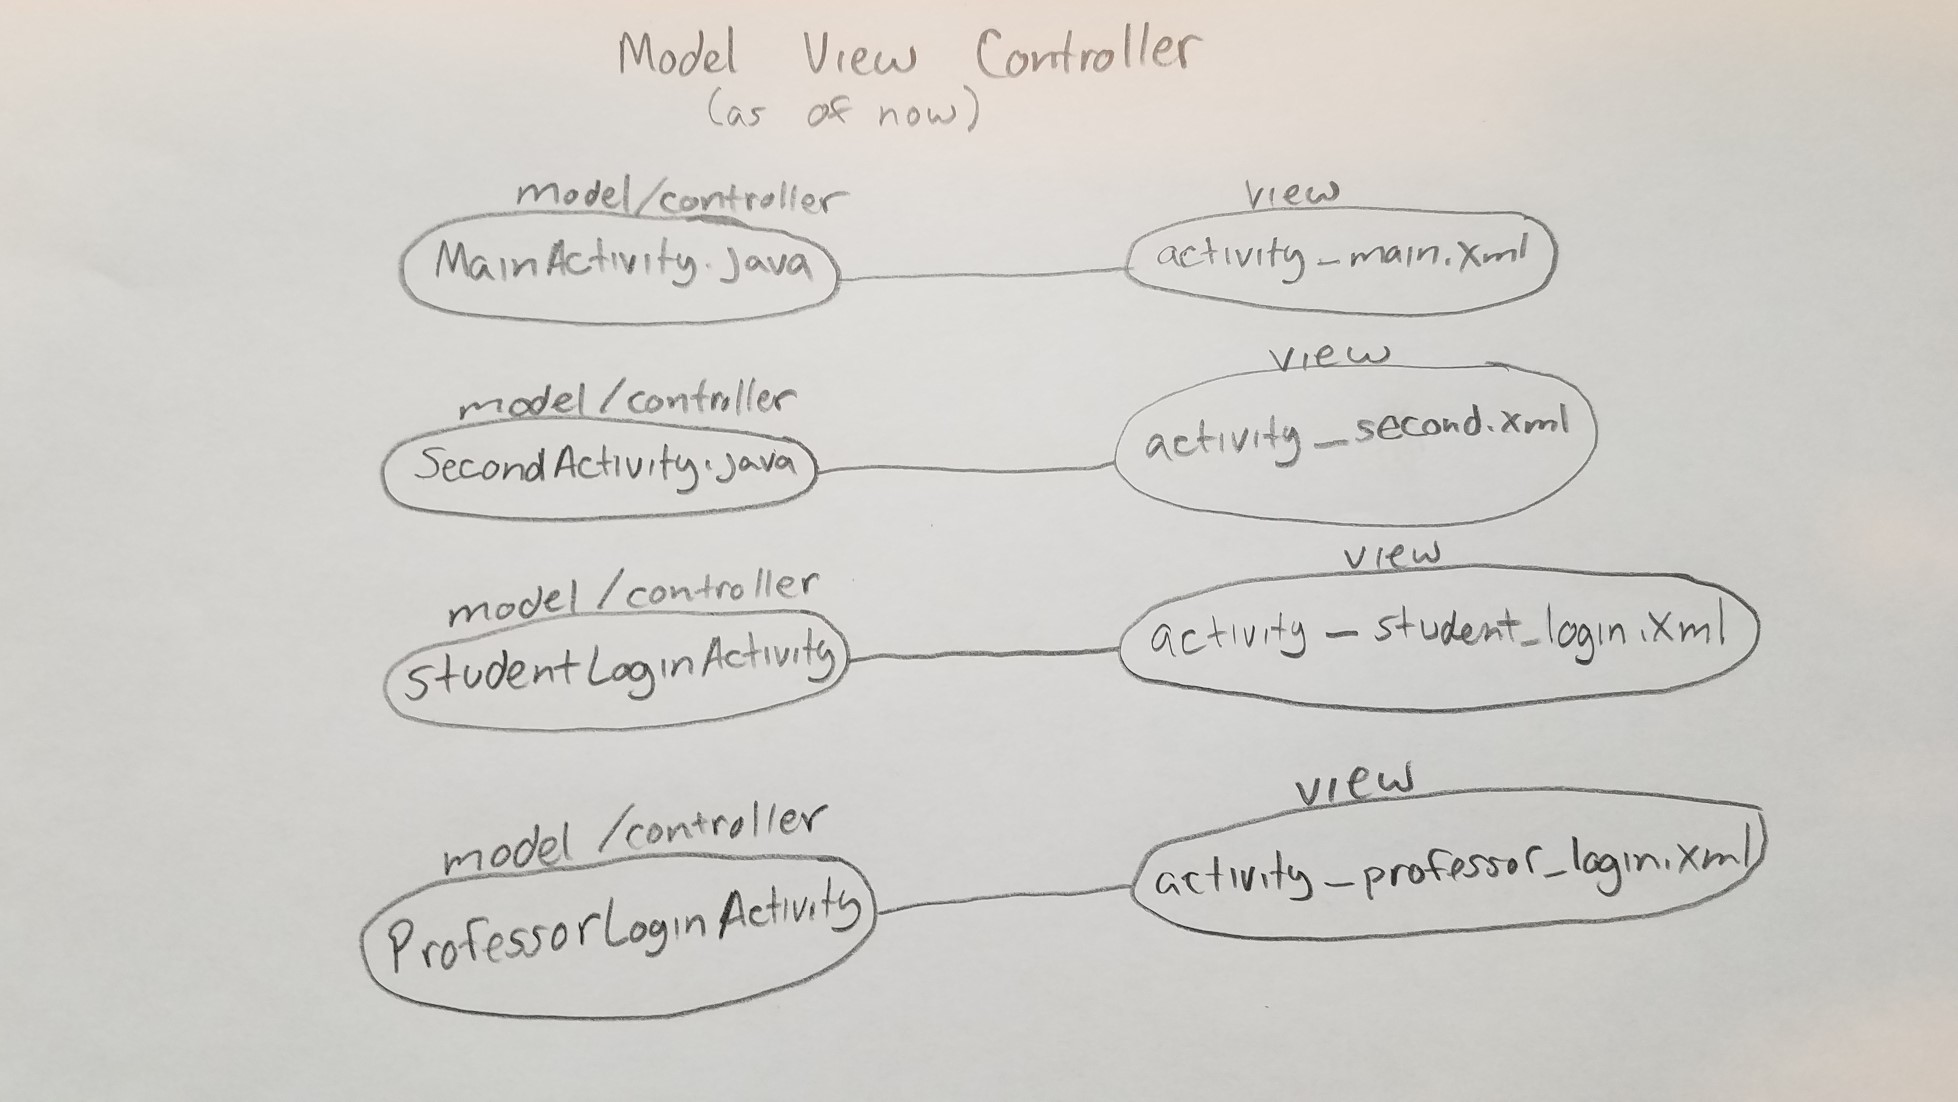 Model View Controller
(as of now)
model/controller
view
MainActivity.java
activity_main.xml
view
model/controller
SecondActivity.java
activity_second.xml
view
model/controller
StudentLoginActivity
activity_student_login.xml
view
model/controller
ProfessorLoginActivity
activity_professor_login.xml